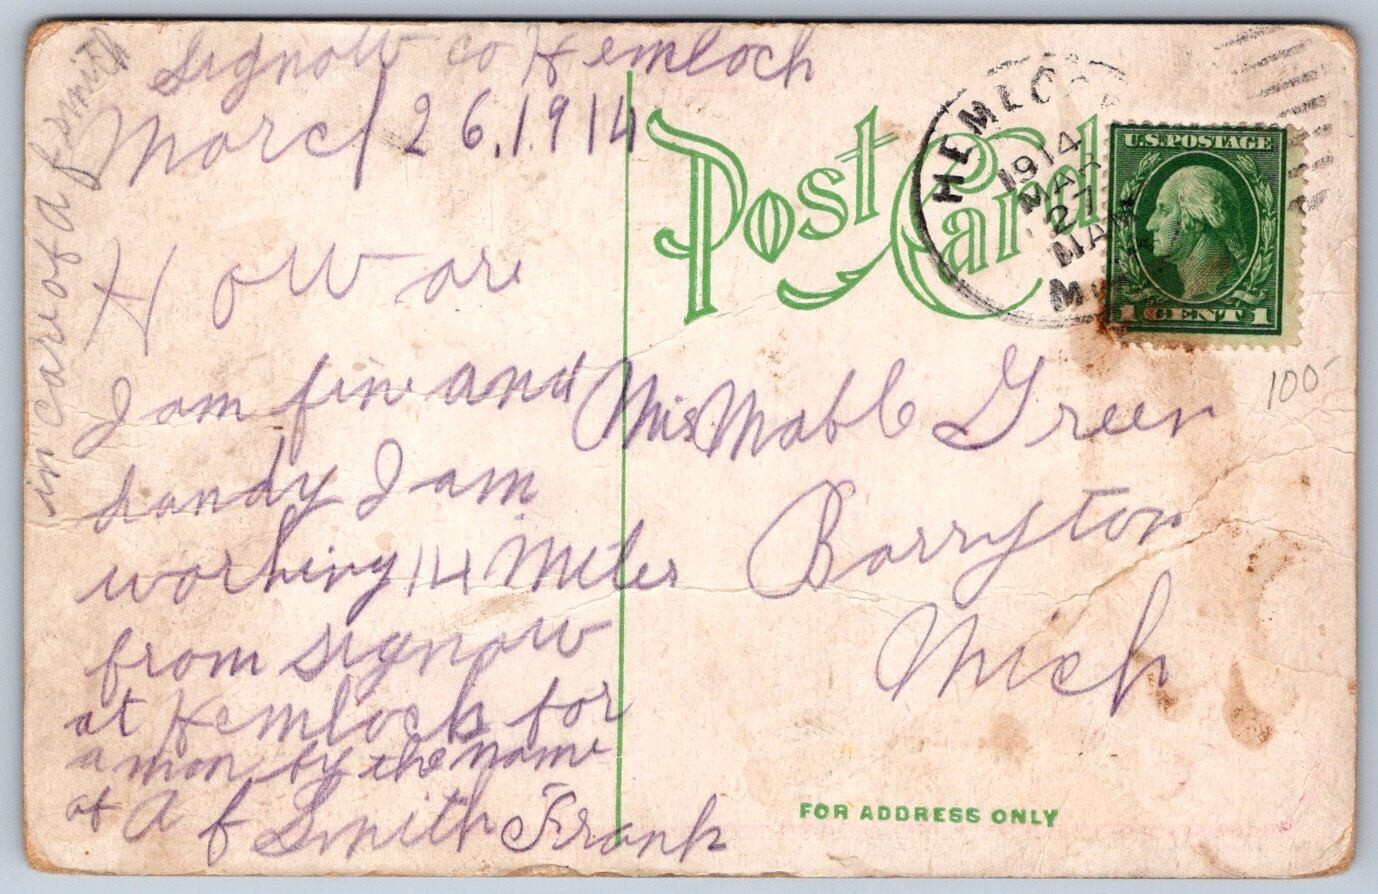 in care of A f smith
Signow co Hemloch
March 26.1914
How are
I am fine and
dandy I am
working 14 Miles
from signow
at Hemlock for
a man by the name
of A f Smith Frank
Post Card
HEMLOCK
1914
MAR
27
MAM
U.S. POSTAGE
1 CENT 1
100-
Mis Mable Green
Barryton
Mich
FOR ADDRESS ONLY